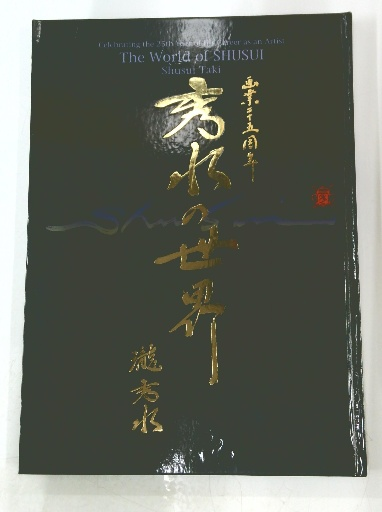 Celebrating the 25th year of his career as an Artist
The World of SHUSUI
Shusui Taki
画業二十五周年
秀水の世界
Shusui
瀧秀水